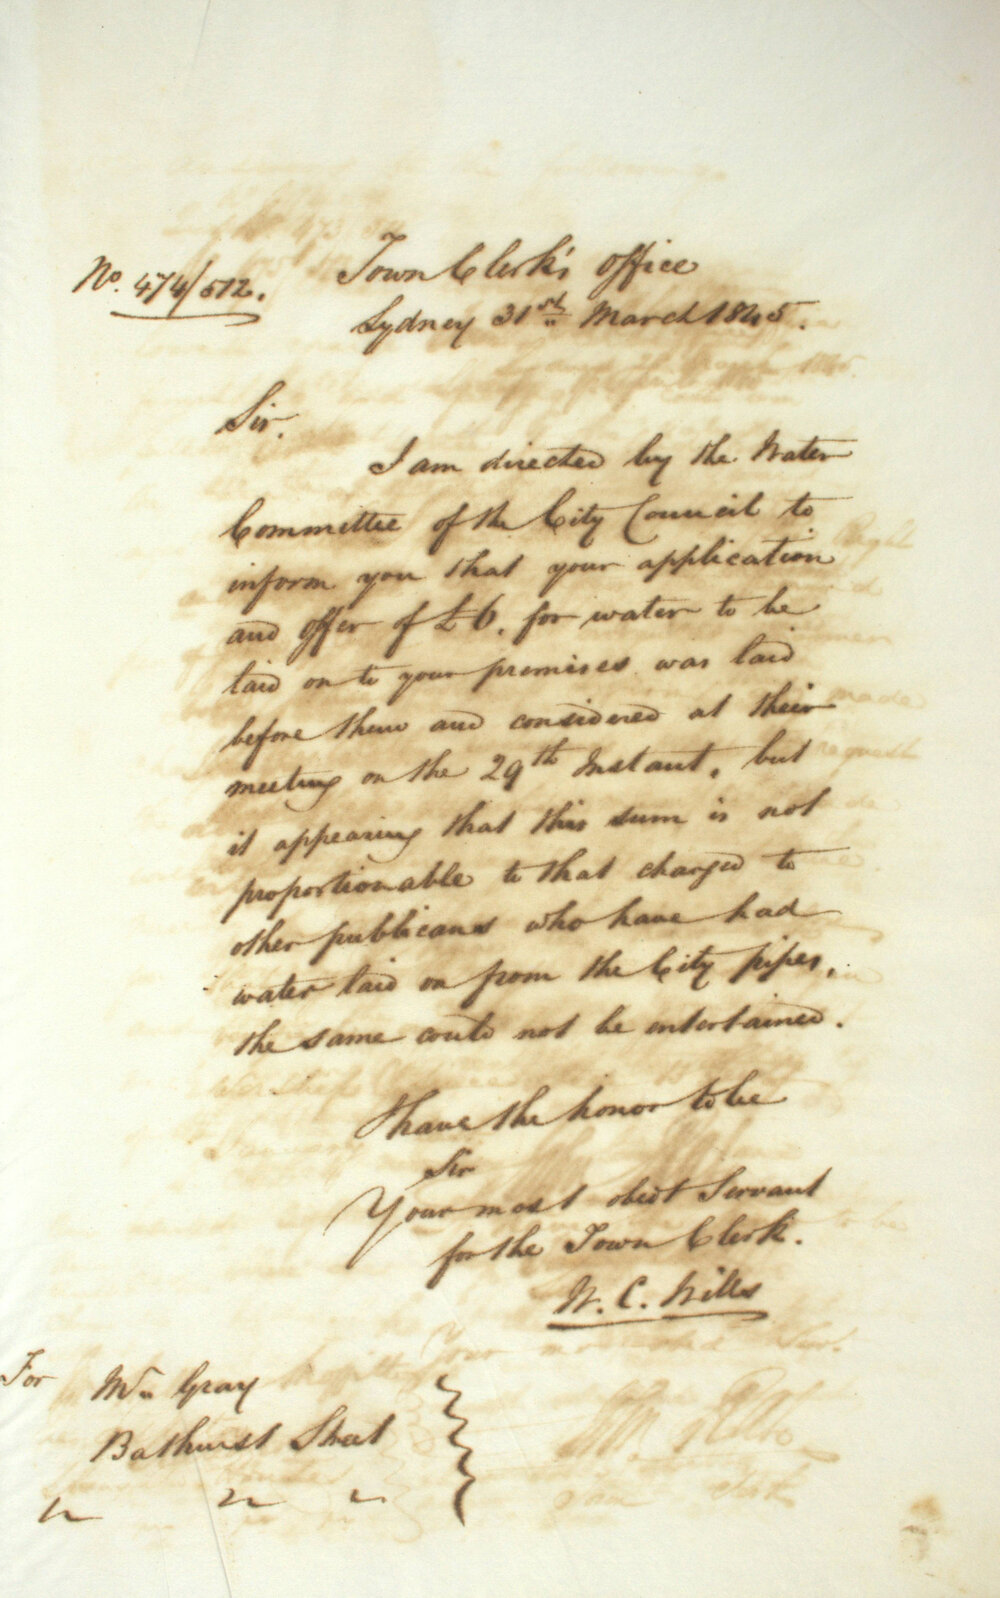 No. 474/512.
Town Clerk's Office
Sydney 31st March 1845.
Sir,
I am directed by the Water
Committee of the City Council to
inform you that your application
and offer of £6. for water to be
laid on to your premises was laid
before them and considered at their
meeting on the 29th Instant, but
it appearing that this sum is not
proportionable to that charged to
other publicans who have had
water laid on from the City pipes,
the same could not be entertained.
I have the honor to be
Sir
Your most obedt Servant
for the Town Clerk.
W. C. Wills
For Mr. Gray
Bathurst Street